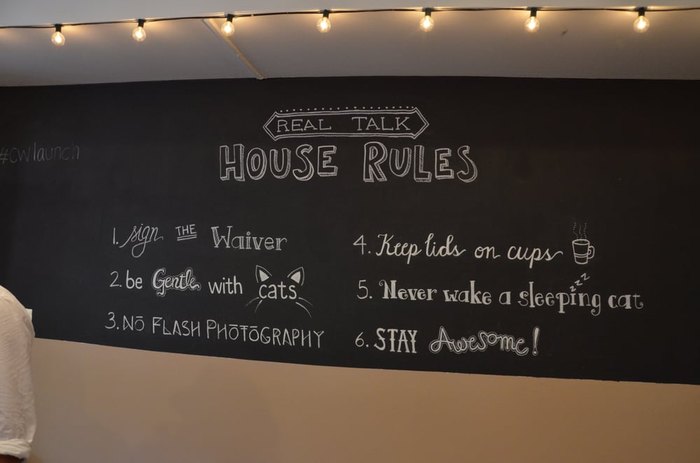 #cwlaunch
REAL TALK
HOUSE RULES
1. sign THE Waiver
2. be Gentle with cats
3. NO FLASH PHOTOGRAPHY
4. Keep lids on cups
5. Never wake a sleeping cat
zzz
6. STAY Awesome!